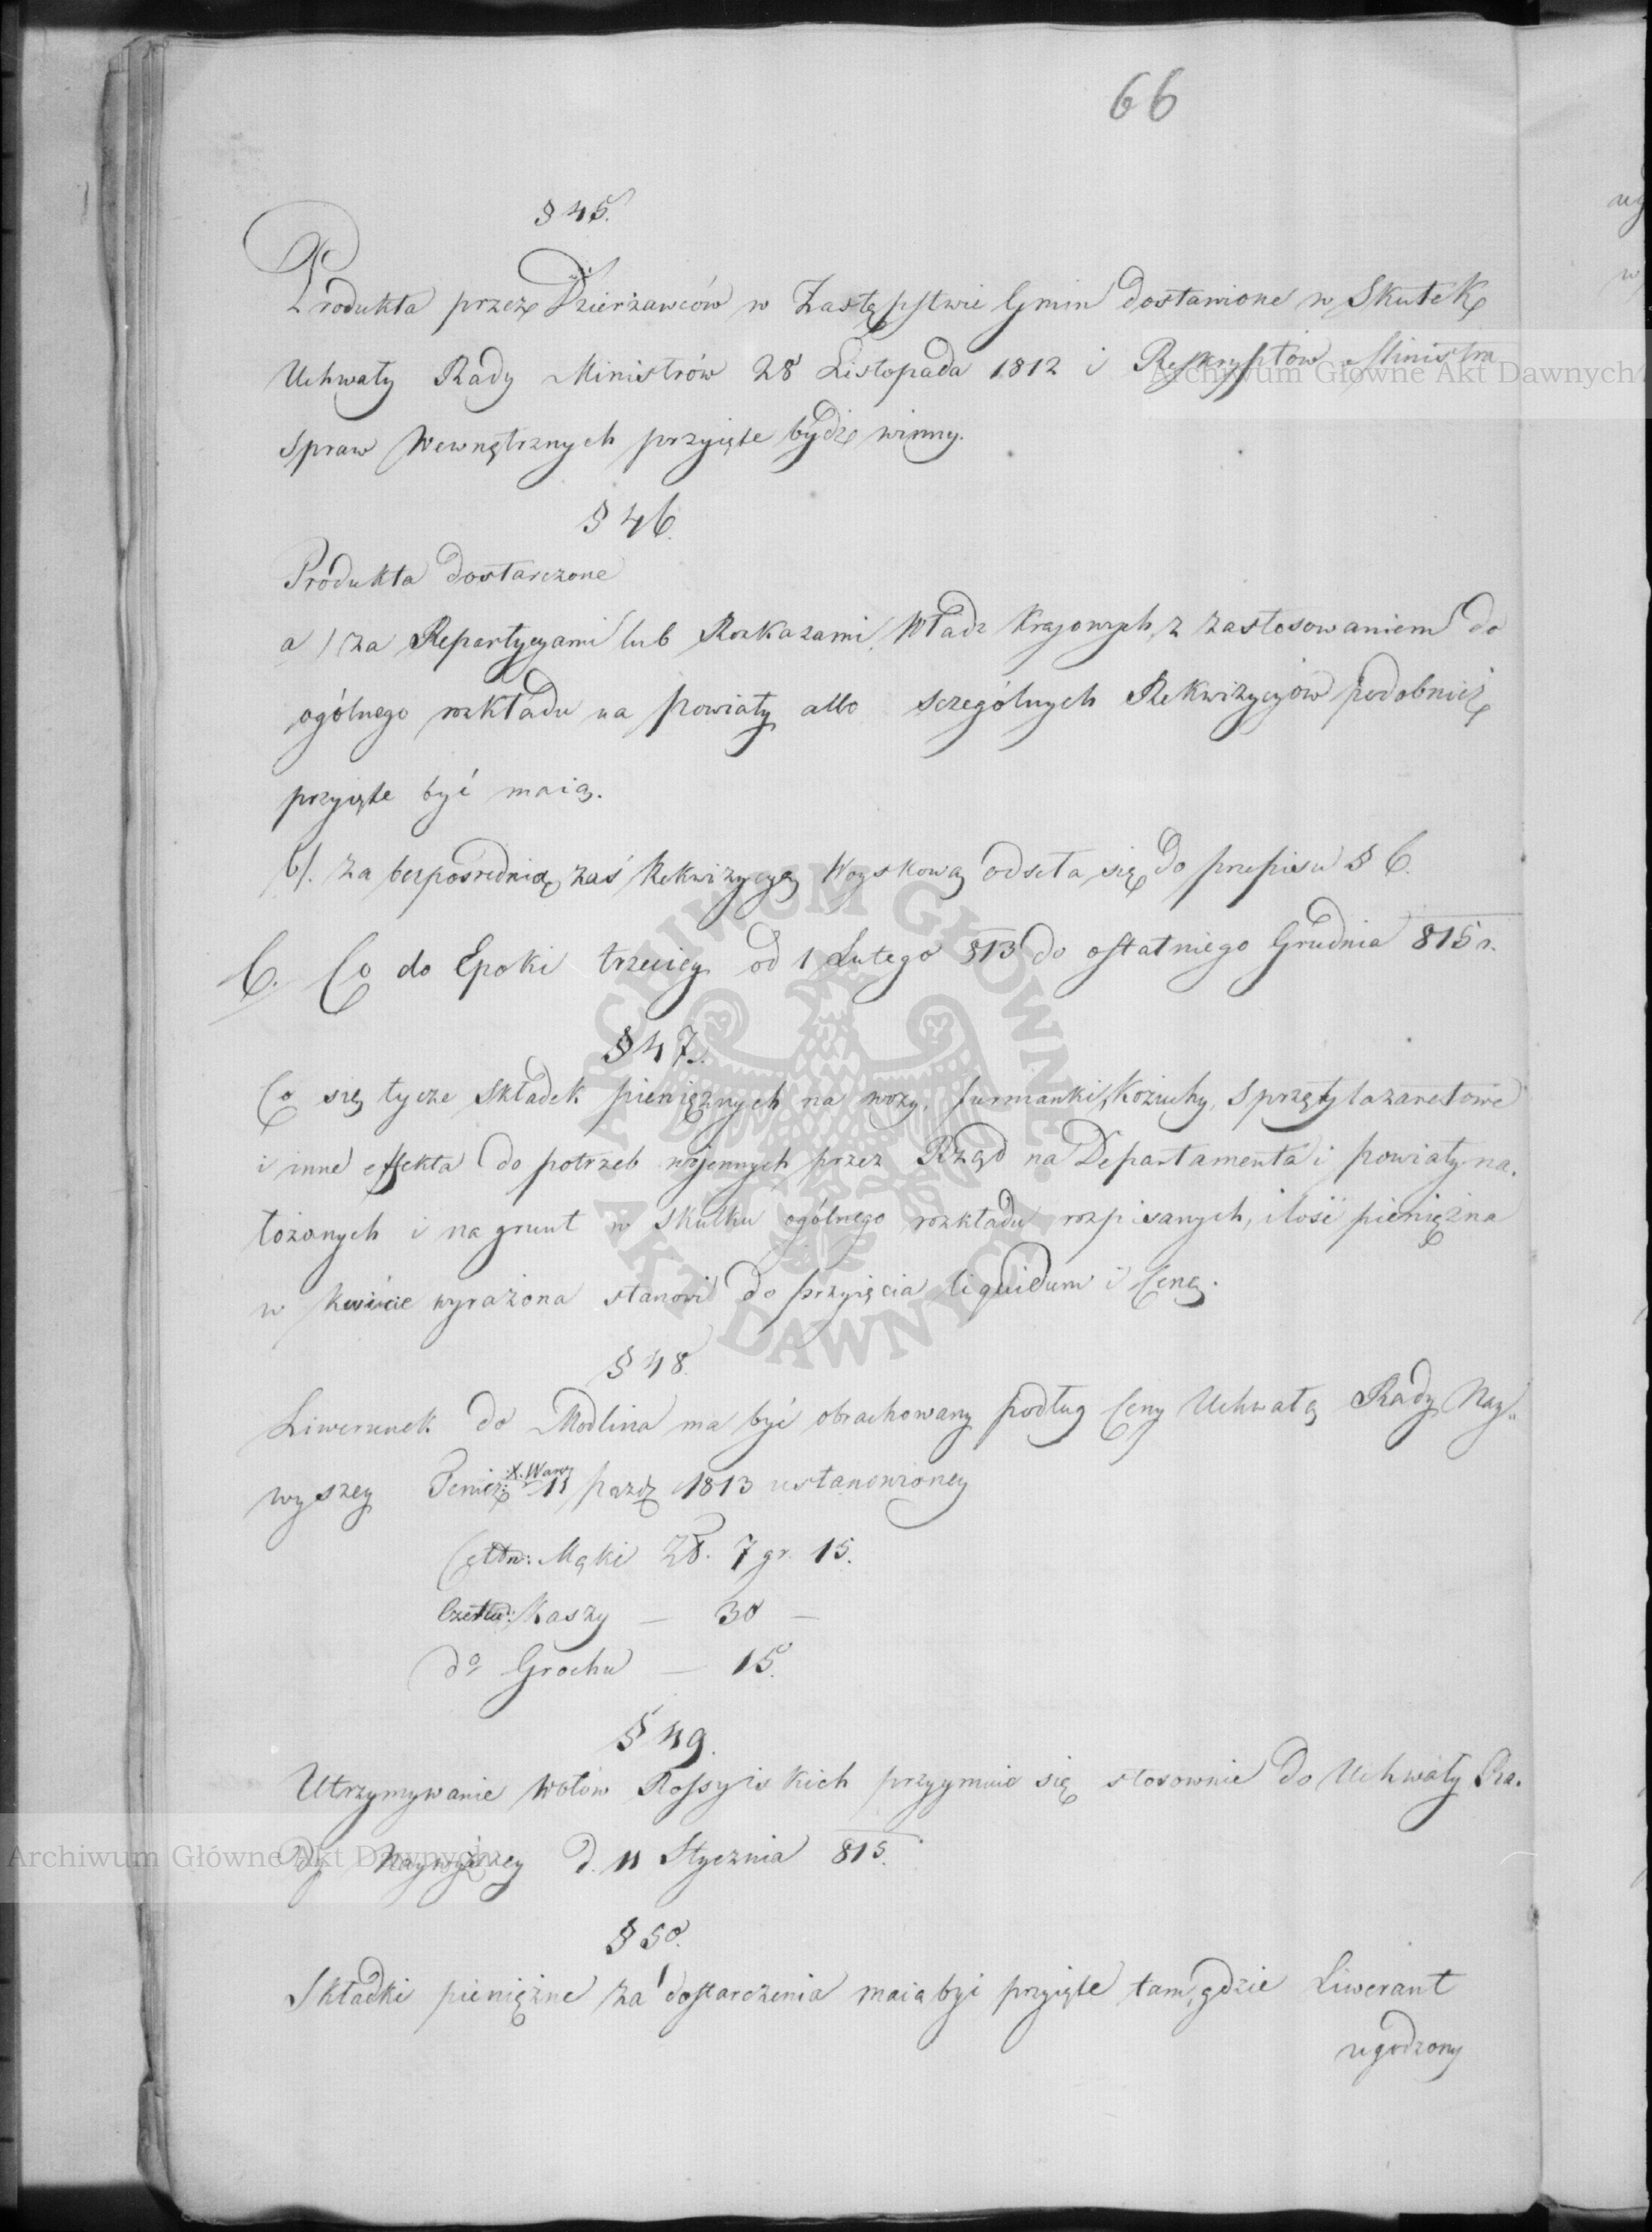 66
§ 45.
Produkta przez Dzierżawców w Zastępstwie Gmin dostawione w Skutek
Uchwały Rady Ministrów 28 Listopada 1812 i Reskryptów Ministra
Archiwum Główne Akt Dawnych
Spraw Wewnętrznych przyięte bydź winny.
§ 46.
Produkta dostarczone
a) za Repartycyami lub Rozkazami Władz Krajowych, z zastosowaniem do
ogólnego rozkładu na powiaty albo sczególnych Rekwizycyów podobnież
przyięte być maią.
b). za bezpośrednią zaś Rekwizycyą Woyskową odseła się do przepisu § 6.
C. Co do Epoki trzeciey od 1 Lutego 813 do ostatniego Grudnia 815 r.
§ 47.
Co się tycze składek pieniężnych na wozy, furmanki, Kożuchy, Sprzęty lazaretowe
i inne effekta do potrzeb wojennych przez Rząd na Departamenta i powiaty na-
łożonych i na grunt w skutku ogólnego rozkładu rozpisanych, ilość pieniężna
w kwicie wyrażona stanowi do przyięcia liquidum i Cenę.
§ 48.
Liwerunek do Modlina ma być obrachowany podług Ceny Uchwałą Rady Nay-
wyszey X. Warsz 11 paźdz 1813 ustanowioney
Cettn: Mąki Zł. 7 gr. 15.
Kaszy — 30 —
do Grochu — 15.
§ 49.
Utrzymywanie Wołów Rossyiskich przyymuie się stosownie do Uchwały Ra-
dy Naywyższey d. 11 Stycznia 815.
Archiwum Główne Akt Dawnych
§ 50.
Składki pieniężne za dostarczenia maią być przyięte tam, gdzie Liwerant
ugodzony
ARCHIWUM GŁÓWNE AKT DAWNYCH